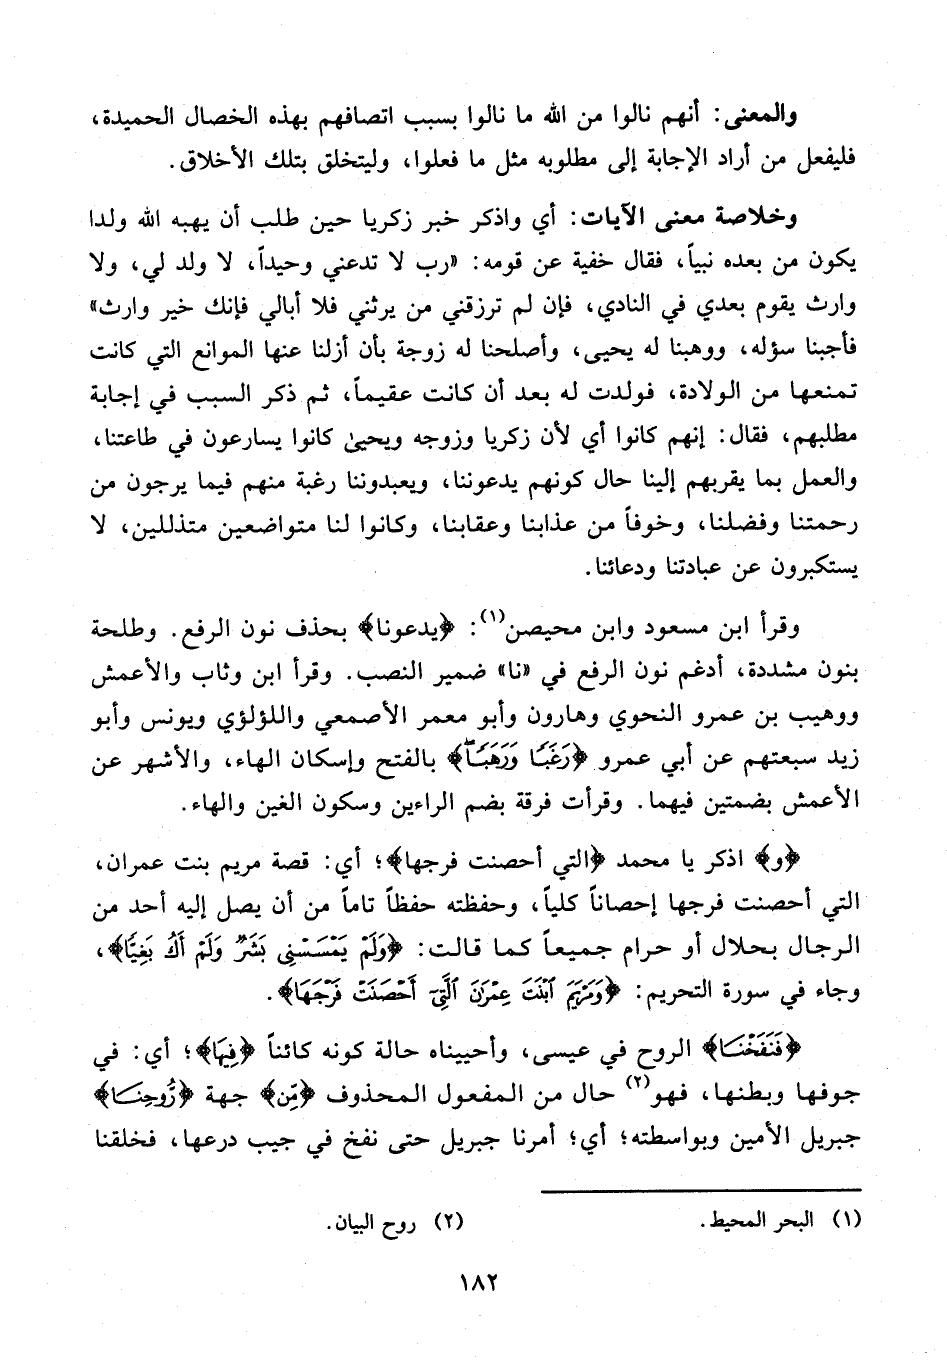 والمعنى: أنهم نالوا من الله ما نالوا بسبب اتصافهم بهذه الخصال الحميدة،
فليفعل من أراد الإجابة إلى مطلوبه مثل ما فعلوا، وليتخلق بتلك الأخلاق.
وخلاصة معنى الآيات: أي واذكر خبر زكريا حين طلب أن يهبه الله ولدا
يكون من بعده نبياً، فقال خفية عن قومه: «رب لا تدعني وحيداً، لا ولد لي، ولا
وارث يقوم بعدي في النادي، فإن لم ترزقني من يرثني فلا أبالي فإنك خير وارث»
فأجبنا سؤله، ووهبنا له يحيى، وأصلحنا له زوجة بأن أزلنا عنها الموانع التي كانت
تمنعها من الولادة، فولدت له بعد أن كانت عقيماً، ثم ذكر السبب في إجابة
مطلبهم، فقال: إنهم كانوا أي لأن زكريا وزوجه ويحيىٰ كانوا يسارعون في طاعتنا،
والعمل بما يقربهم إلينا حال كونهم يدعوننا، ويعبدوننا رغبة منهم فيما يرجون من
رحمتنا وفضلنا، وخوفاً من عذابنا وعقابنا، وكانوا لنا متواضعين متذللين، لا
يستكبرون عن عبادتنا ودعائنا.
وقرأ ابن مسعود وابن محيصن(١): ﴿يدعونا﴾ بحذف نون الرفع. وطلحة
بنون مشددة، أدغم نون الرفع في «نا» ضمير النصب. وقرأ ابن وثاب والأعمش
ووهيب بن عمرو النحوي وهارون وأبو معمر الأصمعي واللؤلؤي ويونس وأبو
زيد سبعتهم عن أبي عمرو ﴿رَغَبًا وَرَهَبًا﴾ بالفتح وإسكان الهاء، والأشهر عن
الأعمش بضمتين فيهما. وقرأت فرقة بضم الراءين وسكون الغين والهاء.
﴿و﴾ اذكر يا محمد ﴿التي أحصنت فرجها﴾؛ أي: قصة مريم بنت عمران،
التي أحصنت فرجها إحصاناً كلياً، وحفظته حفظاً تاماً من أن يصل إليه أحد من
الرجال بحلال أو حرام جميعاً كما قالت: ﴿وَلَمْ يَمْسَسْنِي بَشَرٌ وَلَمْ أَكُ بَغِيًّا﴾،
وجاء في سورة التحريم: ﴿وَمَرْيَمَ ٱبْنَتَ عِمْرَٰنَ ٱلَّتِىٓ أَحْصَنَتْ فَرْجَهَا﴾.
﴿فَنَفَخْنَا﴾ الروح في عيسى، وأحييناه حالة كونه كائناً ﴿فِيهَا﴾؛ أي: في
جوفها وبطنها، فهو(٢) حال من المفعول المحذوف ﴿مِّن﴾ جهة ﴿رُّوحِنَا﴾
جبريل الأمين وبواسطته؛ أي؛ أمرنا جبريل حتى نفخ في جيب درعها، فخلقنا
(١) البحر المحيط.
(٢) روح البيان.
١٨٢